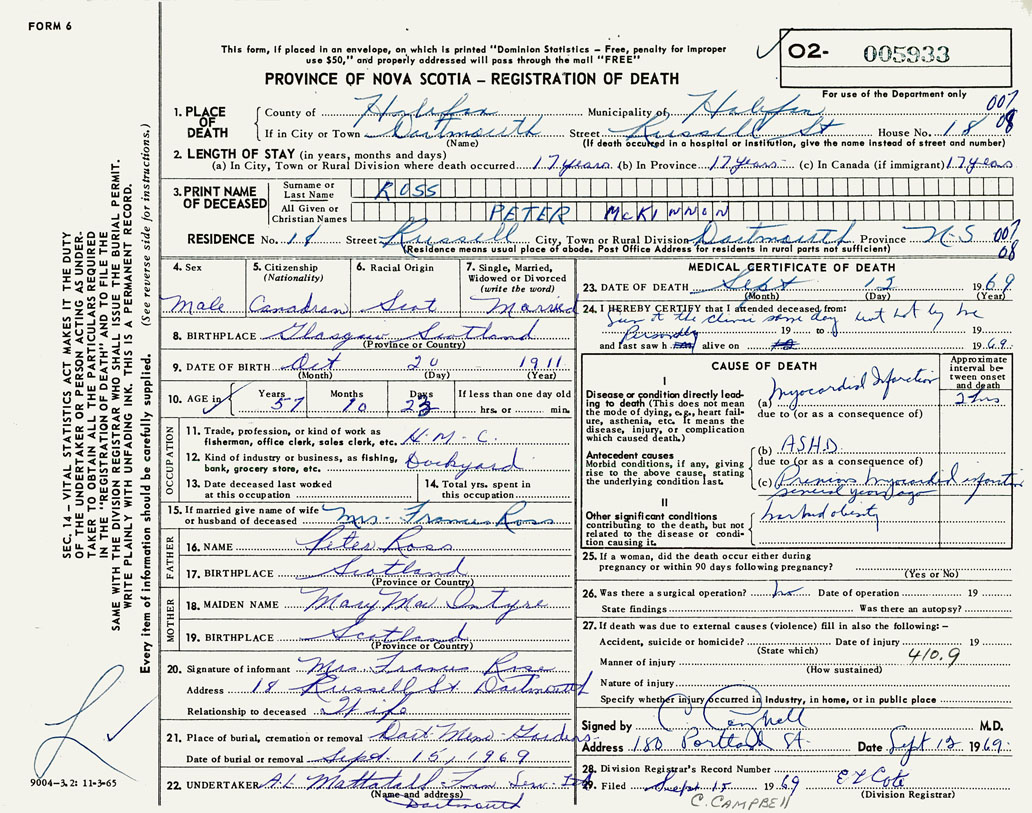 FORM 6
This form, if placed in an envelope, on which is printed "Dominion Statistics – Free, penalty for improper
use $50," and properly addressed will pass through the mail "FREE"
O2- 005933
For use of the Department only
PROVINCE OF NOVA SCOTIA – REGISTRATION OF DEATH
1. PLACE OF DEATH
County of Halifax Municipality of Halifax 007
If in City or Town Dartmouth Street Russell St House No. 18 08
(Name) (If death occurred in a hospital or institution, give the name instead of street and number)
2. LENGTH OF STAY (in years, months and days)
(a) In City, Town or Rural Division where death occurred 17 years (b) In Province 17 years (c) In Canada (if immigrant) 17 years
3. PRINT NAME OF DECEASED
Surname or Last Name ROSS
All Given or Christian Names PETER McKINNON
RESIDENCE No. 18 Street Russell City, Town or Rural Division Dartmouth Province N-S 007
(Residence means usual place of abode, Post Office Address for residents in rural parts not sufficient) 08
4. Sex Male
5. Citizenship (Nationality) Canadian
6. Racial Origin Scot
7. Single, Married, Widowed or Divorced (write the word) Married
8. BIRTHPLACE Glasgow Scotland
(Province or Country)
9. DATE OF BIRTH Oct 20 1911
(Month) (Day) (Year)
10. AGE in Years 57 Months 10 Days 23 If less than one day old hrs. or min.
OCCUPATION
11. Trade, profession or kind of work as fisherman, office clerk, sales clerk, etc. H.M.C.
12. Kind of industry or business, as fishing, bank, grocery store, etc. Dockyard
13. Date deceased last worked at this occupation
14. Total yrs. spent in this occupation
15. If married give name of wife or husband of deceased Mrs. Frances Ross
FATHER
16. NAME Peter Ross
17. BIRTHPLACE Scotland
(Province or Country)
MOTHER
18. MAIDEN NAME Mary Mac Intyre
19. BIRTHPLACE Scotland
(Province or Country)
20. Signature of informant Mrs Frances Ross
Address 18 Russell St Dartmouth
Relationship to deceased Wife
21. Place of burial, cremation or removal Dart Mem. Gardens
Date of burial or removal Sept. 15, 1969
22. UNDERTAKER A.L. Mattatall Fun Ser.
(Name and address)
Dartmouth
MEDICAL CERTIFICATE OF DEATH
23. DATE OF DEATH Sept 12 1969
(Month) (Day) (Year)
24. I HEREBY CERTIFY that I attended deceased from:
Seen at the clinic same day but not by me
Personally 19 to 19
and last saw h alive on 1969
CAUSE OF DEATH
Approximate interval between onset and death
I
Disease or condition directly leading to death (This does not mean the mode of dying, e.g., heart failure, asthenia, etc. It means the disease, injury, or complication which caused death.)
(a) Myocardial Infarction 2 hrs
due to (or as a consequence of)
Antecedent causes
Morbid conditions, if any, giving rise to the above cause, stating the underlying condition last.
(b) ASHD
due to (or as a consequence of)
(c) Previous myocardial infarction
several years ago
II
Other significant conditions
contributing to the death, but not related to the disease or condition causing it.
marked obesity
25. If a woman, did the death occur either during
pregnancy or within 90 days following pregnancy?
(Yes or No)
26. Was there a surgical operation? no Date of operation 19
State findings Was there an autopsy?
27. If death was due to external causes (violence) fill in also the following: –
Accident, suicide or homicide? Date of injury 19
(State which) 410.9
Manner of injury
(How sustained)
Nature of injury
Specify whether injury occurred in industry, in home, or in public place
Signed by C. Campbell M.D.
Address 180 Portland St. Date Sept 12 1969
28. Division Registrar's Record Number
29. Filed Sept 15 1969 E L Cote
(Division Registrar)
C. CAMPBELL
SEC. 14 – VITAL STATISTICS ACT MAKES IT THE DUTY
OF THE UNDERTAKER OR PERSON ACTING AS UNDER-
TAKER TO OBTAIN ALL THE PARTICULARS REQUIRED
IN THE "REGISTRATION OF DEATH" AND TO FILE THE
SAME WITH THE DIVISION REGISTRAR WHO SHALL ISSUE THE BURIAL PERMIT.
WRITE PLAINLY WITH UNFADING INK. THIS IS A PERMANENT RECORD.
Every item of information should be carefully supplied. (See reverse side for instructions.)
9004-3.2: 11-3-65